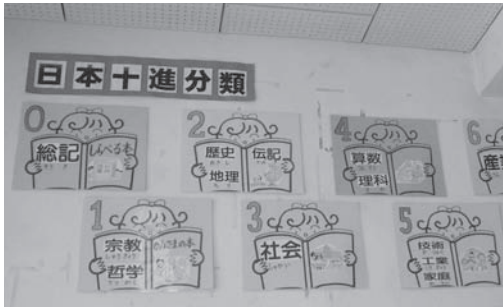 日本十進分類
0
総記
しらべる本
2
歴史
伝記
地理
4
算数
理科
6
産
1
宗教
哲学
3
社会
5
技術
工業
家庭